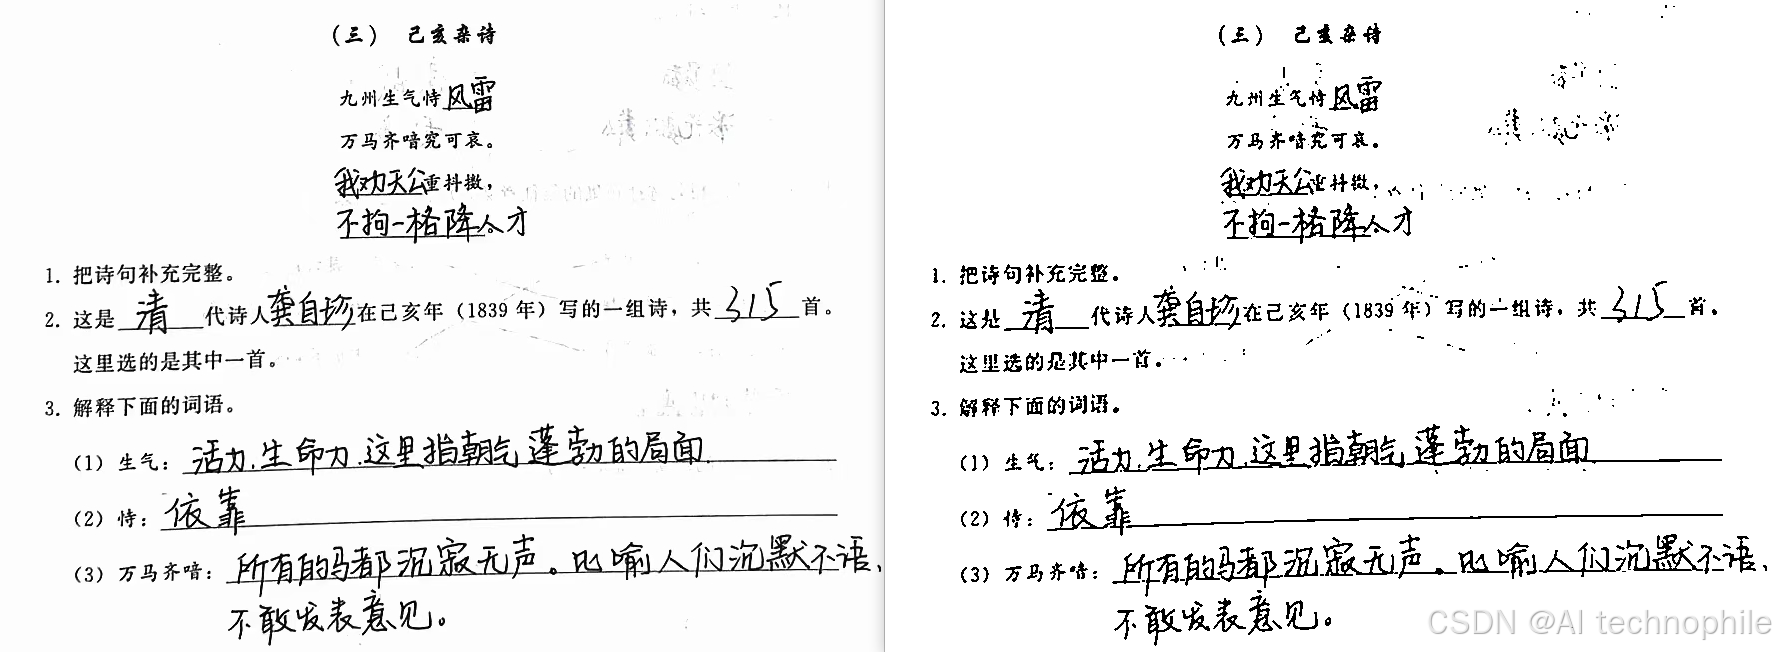 (三) 己亥杂诗
九州生气恃风雷
万马齐喑究可哀。
我劝天公重抖擞，
不拘一格降人才
1. 把诗句补充完整。
2. 这是清代诗人龚自珍在己亥年（1839 年）写的一组诗，共315首。
这里选的是其中一首。
3. 解释下面的词语。
(1) 生气：活力.生命力.这里指朝气蓬勃的局面.
(2) 恃：依靠
(3) 万马齐喑：所有的马都沉寂无声。比喻人们沉默不语、
不敢发表意见。
(三) 己亥杂诗
九州生气恃风雷
万马齐喑究可哀。
我劝天公重抖擞，
不拘一格降人才
1. 把诗句补充完整。
2. 这是清代诗人龚自珍在己亥年（1839 年）写的一组诗，共315首。
这里选的是其中一首。
3. 解释下面的词语。
(1) 生气：活力.生命力.这里指朝气蓬勃的局面
(2) 恃：依靠
(3) 万马齐喑：所有的马都沉寂无声。比喻人们沉默不语、
不敢发表意见。
CSDN @AI technophile